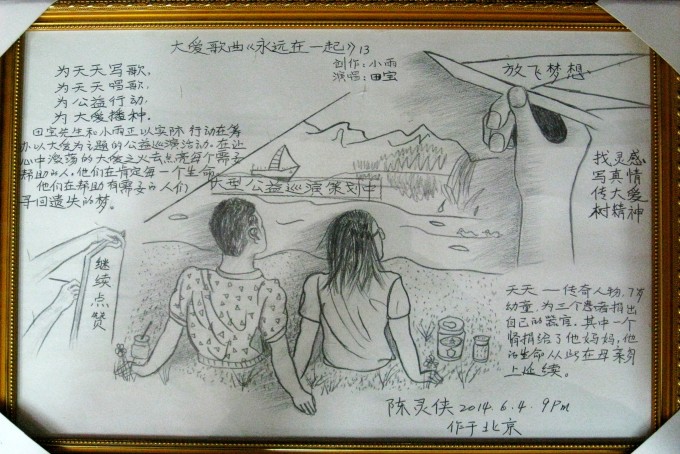 大爱歌曲《永远在一起》13
创作：小雨
演唱：田宝
为天天写歌,
为天天唱歌,
为公益行动,
为大爱播种.
田宝先生和小雨正以实际行动在筹
办以大爱为主题的公益巡演活动.在让
心中滚荡的大爱之火去点亮每个需要
帮助的人,他们在肯定每一个生命
他们在帮助有需要的人们
寻回遗失的梦。
大型公益巡演策划中
放飞梦想.
找灵感
写真情
传大爱
树精神
继续点赞
天天——传奇人物,7岁
幼童,为三个患者捐出
自己的器官,其中一个
肾捐给了他妈妈,他
的生命从此在母亲身
上延续。
陈灵侠 2014.6.4.9Pm
作于北京